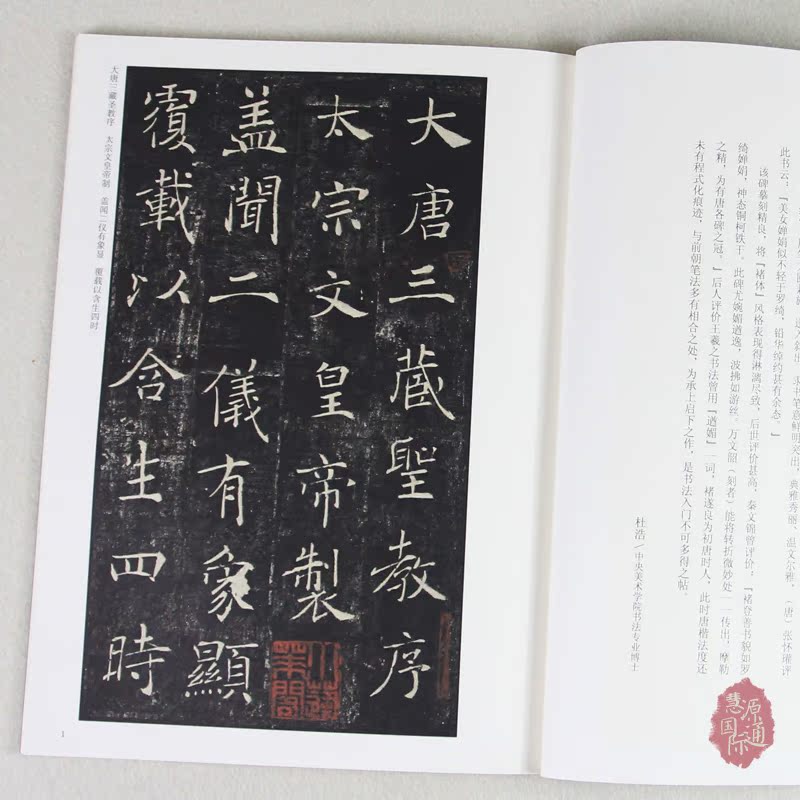 鲜明突出，典雅秀丽、温文尔雅，（唐）张怀瓘评
此书云：『美女婵娟似不轻于罗绮，铅华绰约甚有余态。』
该碑摹刻精良，将『褚体』风格表现得淋漓尽致，后世评价甚高，秦文锦曾评价：『褚登善书貌如罗
绮婵娟，神态铜柯铁干。此碑尤婉媚遒逸，波拂如游丝。万文韶（刻者）能将转折微妙处一一传出，摩勒
之精，为有唐各碑之冠。』后人评价王羲之书法曾用『遒媚』一词，褚遂良为初唐时人，此时唐楷法度还
未有程式化痕迹，与前朝笔法多有相合之处，为承上启下之作，是书法入门不可多得之帖。
杜浩／中央美术学院书法专业博士
大唐三藏聖教序
太宗文皇帝製
蓋聞二儀有象顯
覆載以含生四時
大唐三藏圣教序　太宗文皇帝制　盖闻二仪有象显　覆载以含生四时
1
慧源国际通